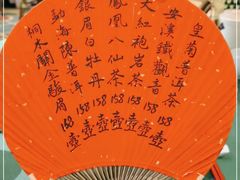 皇菊普洱茶 158 壺
安溪鐵觀音 158 壺
大紅袍岩茶 158 壺
鳳凰八仙茶 158 壺
銀眉白牡丹 158 壺
勐海陳普洱 158 壺
桐木關金駿眉 158 壺